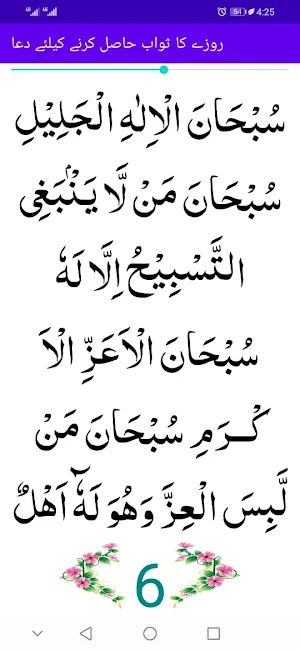 4:25
روزے کا ثواب حاصل کرنے کیلئے دعا
سُبْحَانَ الْاِلٰهِ الْجَلِيْلِ
سُبْحَانَ مَنْ لَّا يَنْۢبَغِى
التَّسْبِيْحُ اِلَّا لَهٗ
سُبْحَانَ الْاَعَزِّ الْاَ
كْـرَمِ سُبْحَانَ مَنْ
لَّبِسَ الْعِزَّ وَهُوَ لَهٗٓ اَهْلٌ
6